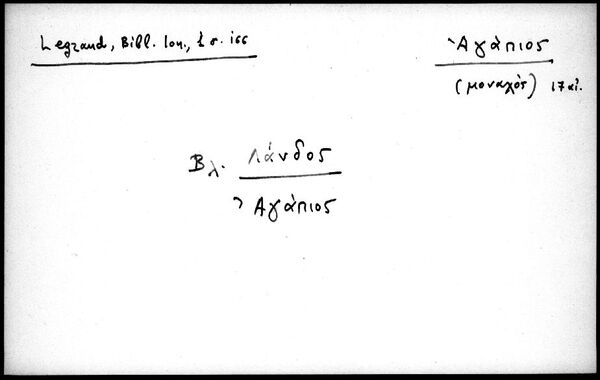 Legrand, Bibl. Ion., 1 σ. 166
Ἀγάπιος
(μοναχός) 17 αἰ.
Βλ. Λάνδος
Ἀγάπιος